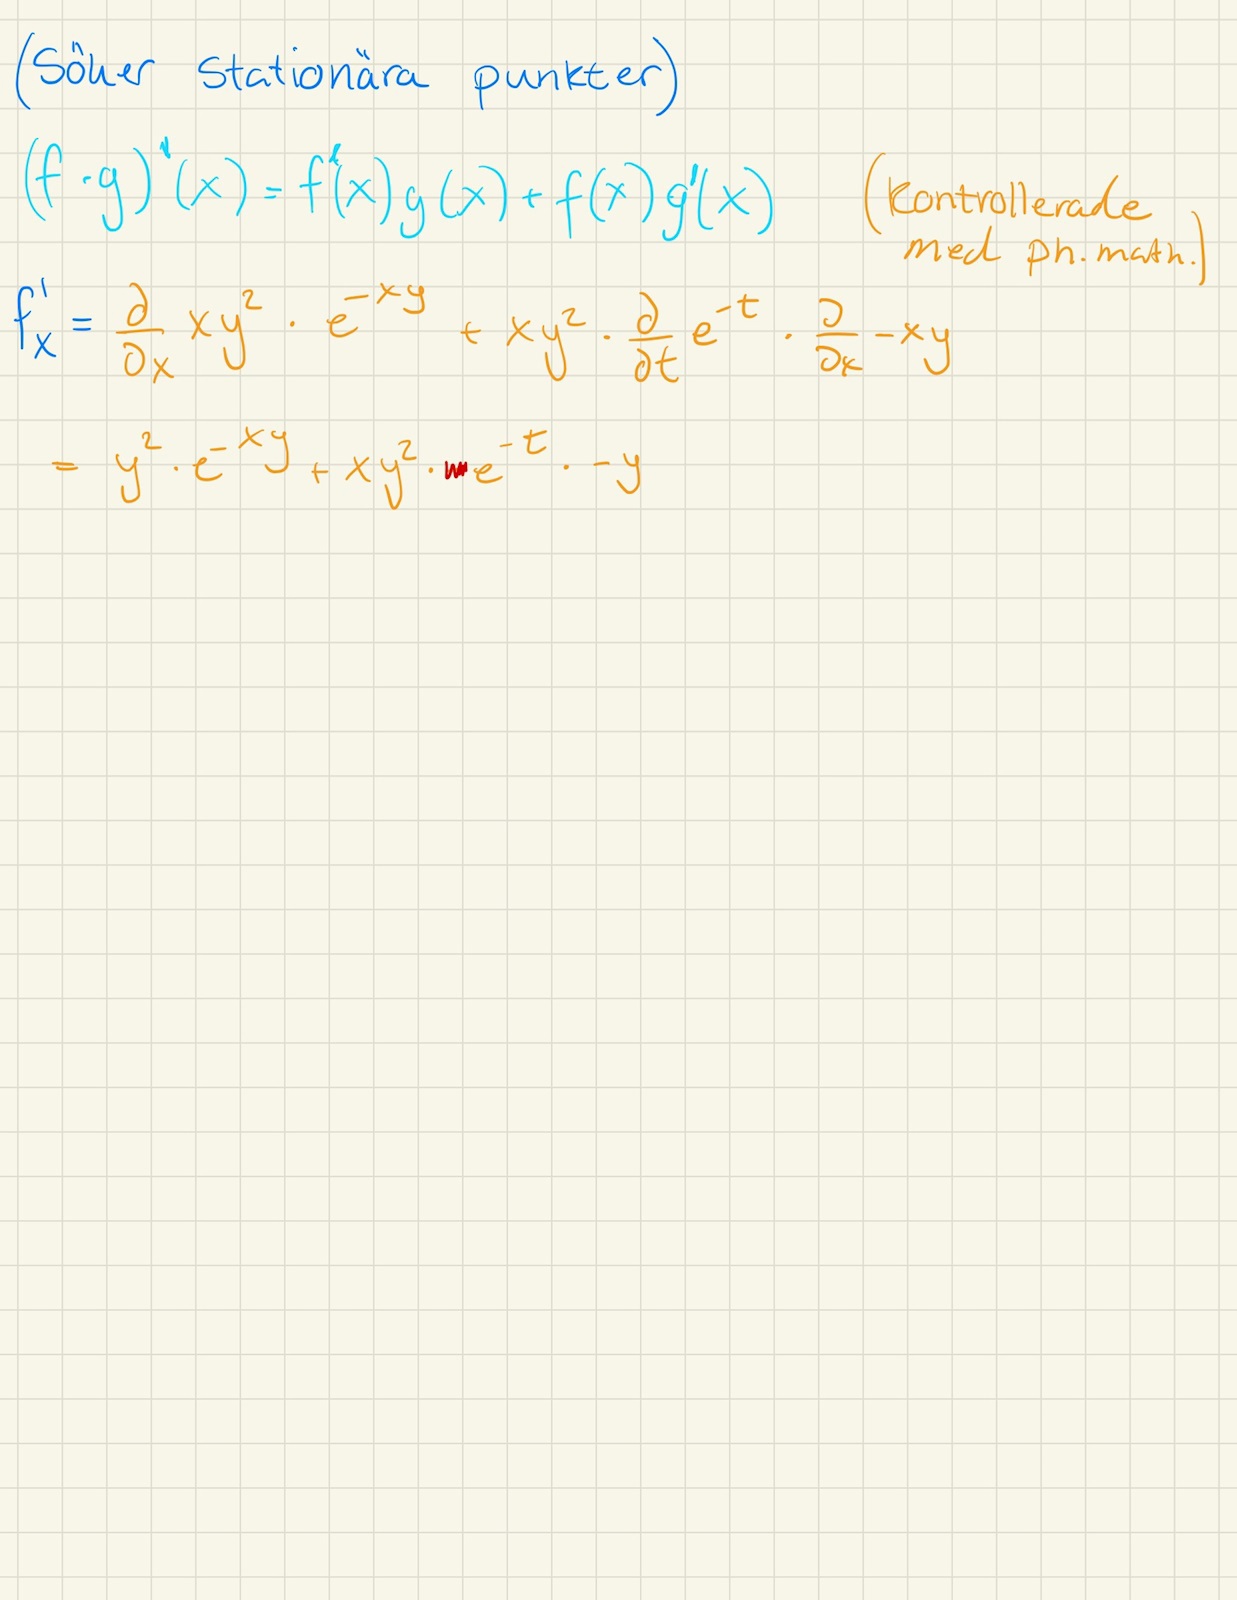 (Söker stationära punkter)
(f·g)'(x) = f'(x)g(x) + f(x)g'(x)
(kontrollerade
med ph.math.)
f'ₓ = ∂/∂x xy² · e^(-xy) + xy² · ∂/∂t e^(-t) · ∂/∂x -xy
= y² · e^(-xy) + xy² · e^(-t) · -y